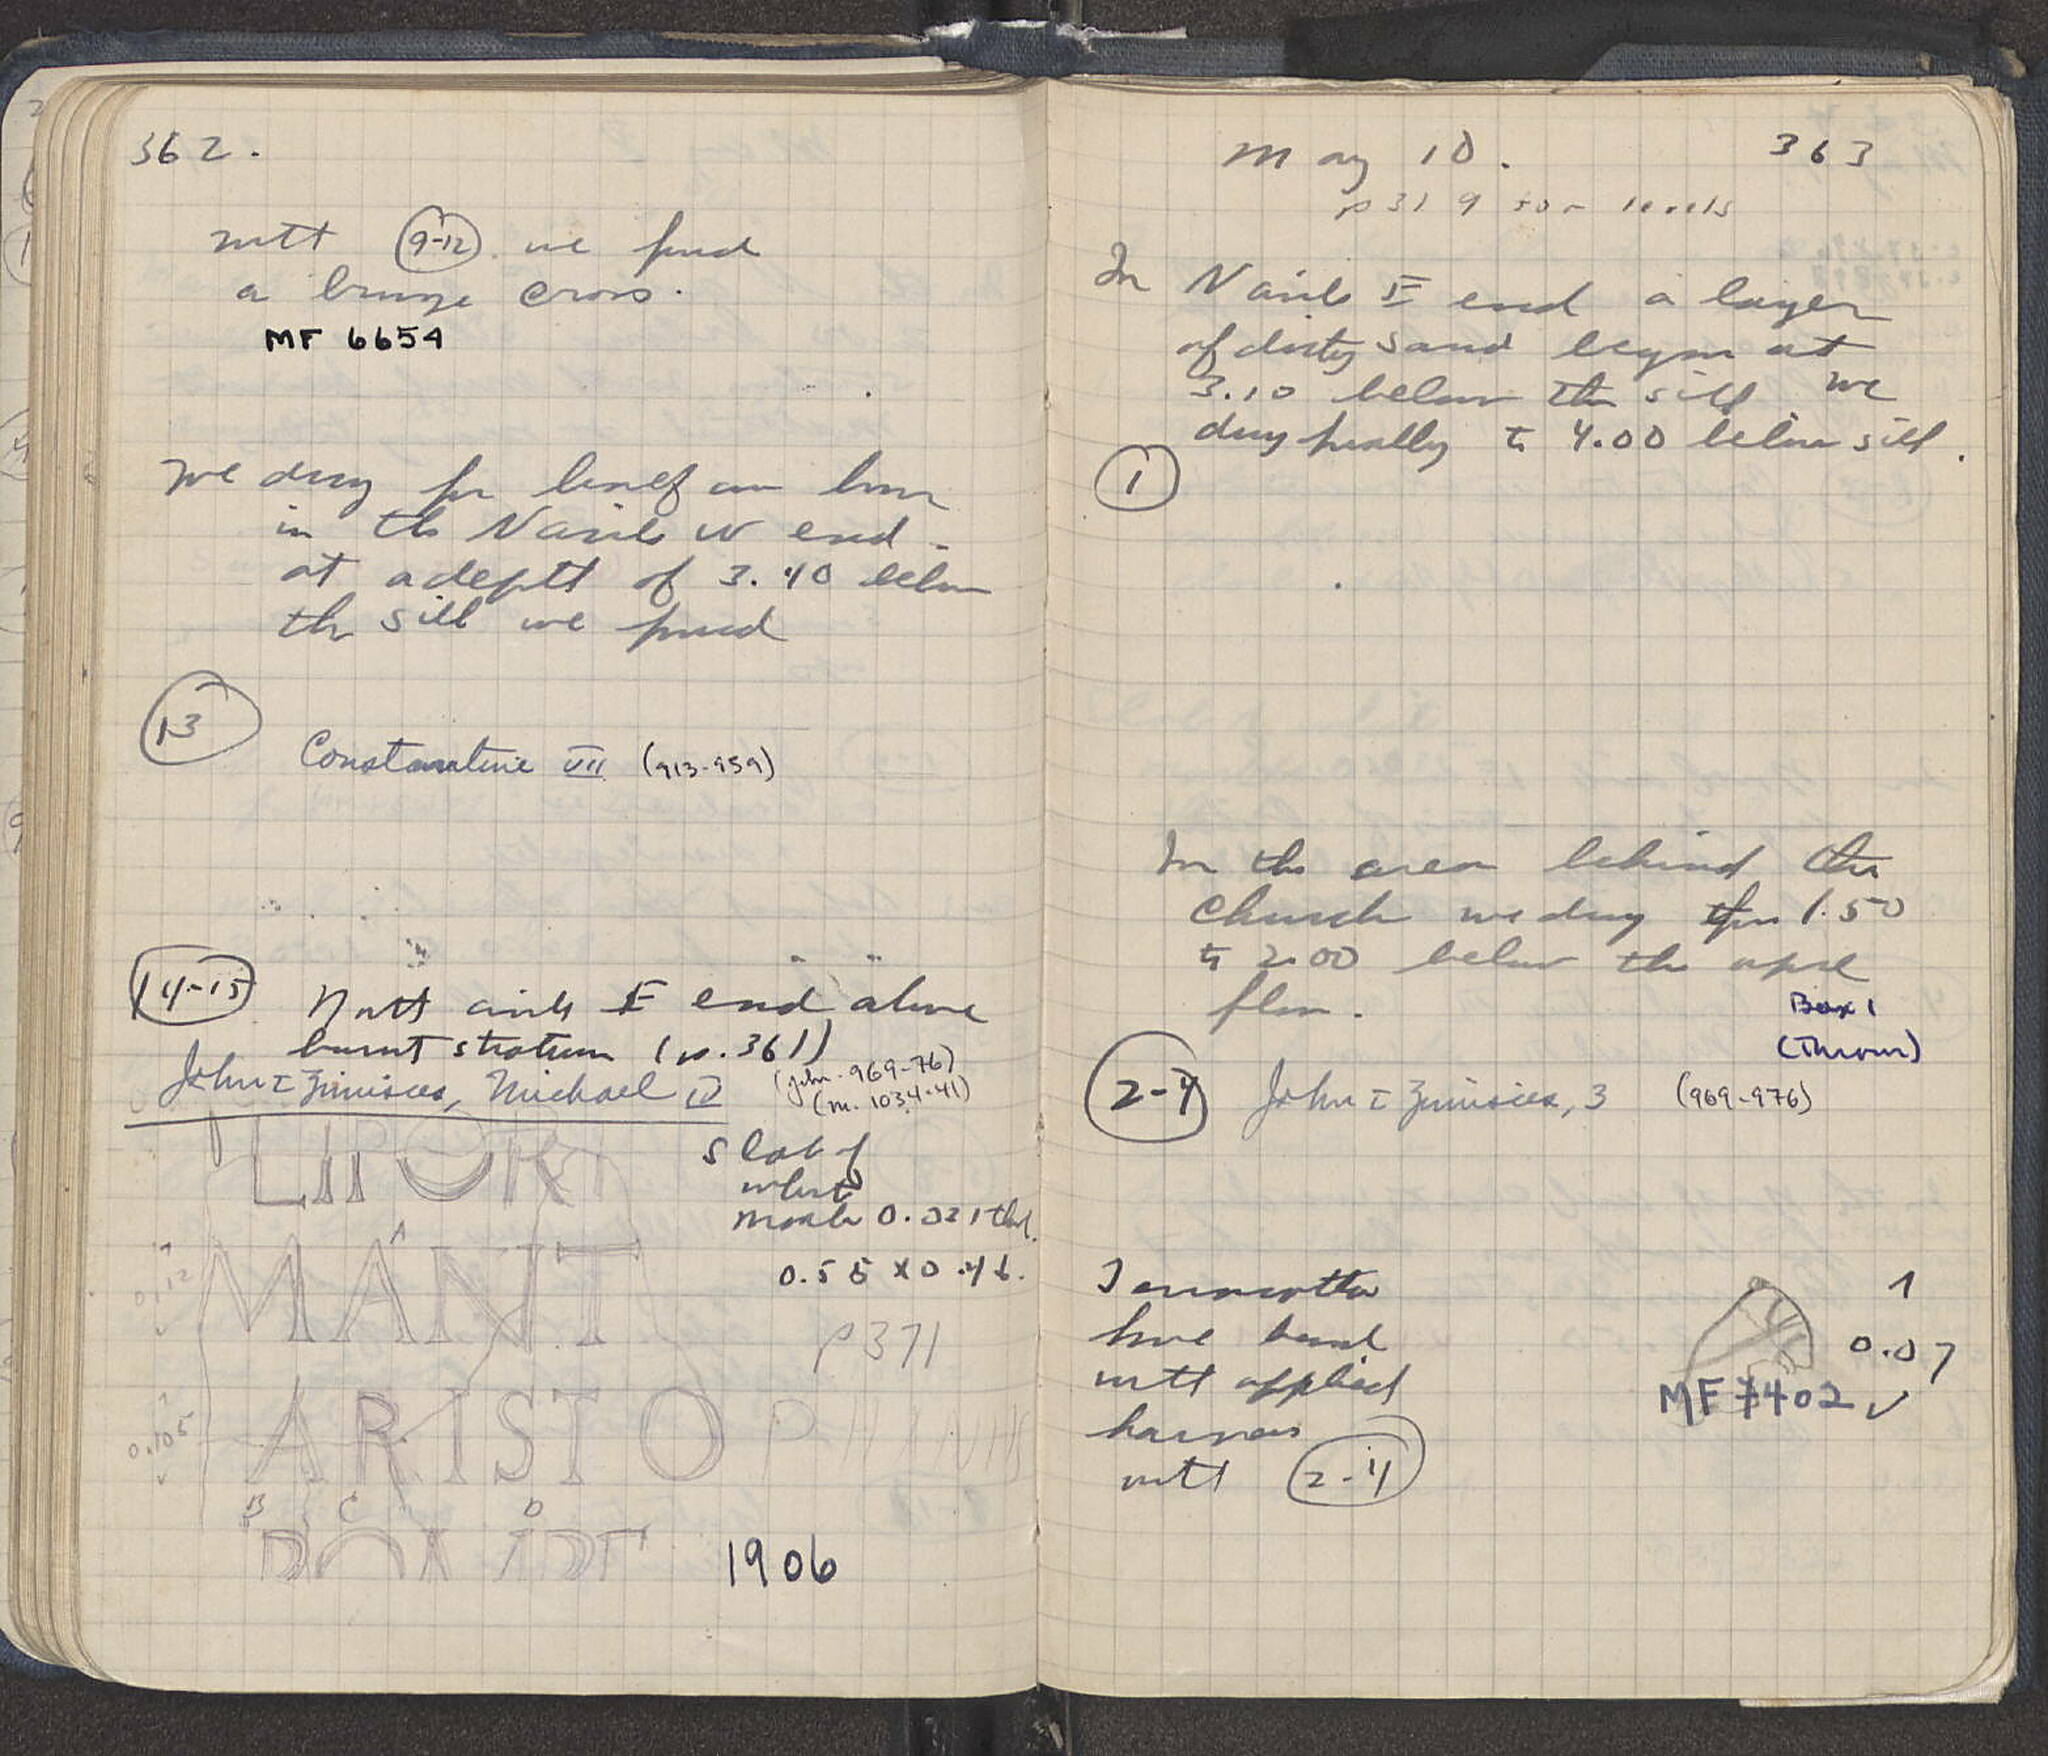 362.
with 9-12 we found
a bronze cross.
MF 6654
we dug for half an hour
in the N aisle W end.
at a depth of 3.40 below
the sill we found
13
Constantine VII (913-959)
14-15 North aisle E end above
burnt stratum (p. 361)
John I Zimisces, Michael IV
(John - 969-76)
(M. 1034-41)
Slab of
white
marble 0.021 thick.
0.55 x 0.46.
p 371
A
MANT
0.12
ARISTOP
0.105
B C D
1906
May 10. 363
p 319 for levels
In N aisle E end a layer
of dirty sand began at
3.10 below the sill we
dug finally to 4.00 below sill.
1
In the area behind the
church we dug from 1.50
to 2.00 below the apse
floor.
Box 1
(Thrown)
2-4 John I Zimisces, 3 (969-976)
Terracotta
horse head
with applied
harness
with 2-4
1
0.07
MF 7402 ✓